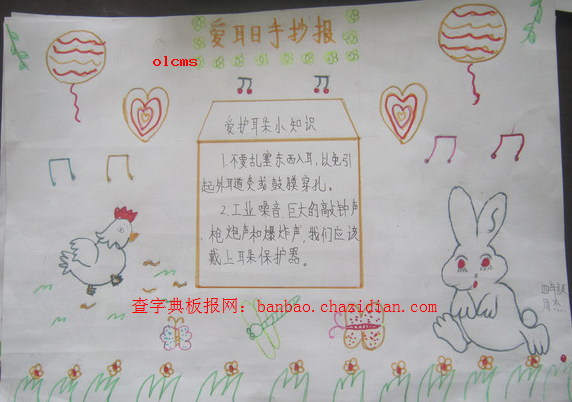 爱耳日手抄报
olcms
爱护耳朵小知识
1.不要乱塞东西入耳,以免引
起外耳道炎或鼓膜穿孔。
2.工业噪音、巨大的敲钟声
、枪炮声和爆炸声,我们应该
戴上耳朵保护器。
查字典板报网:banbao.chazidian.com